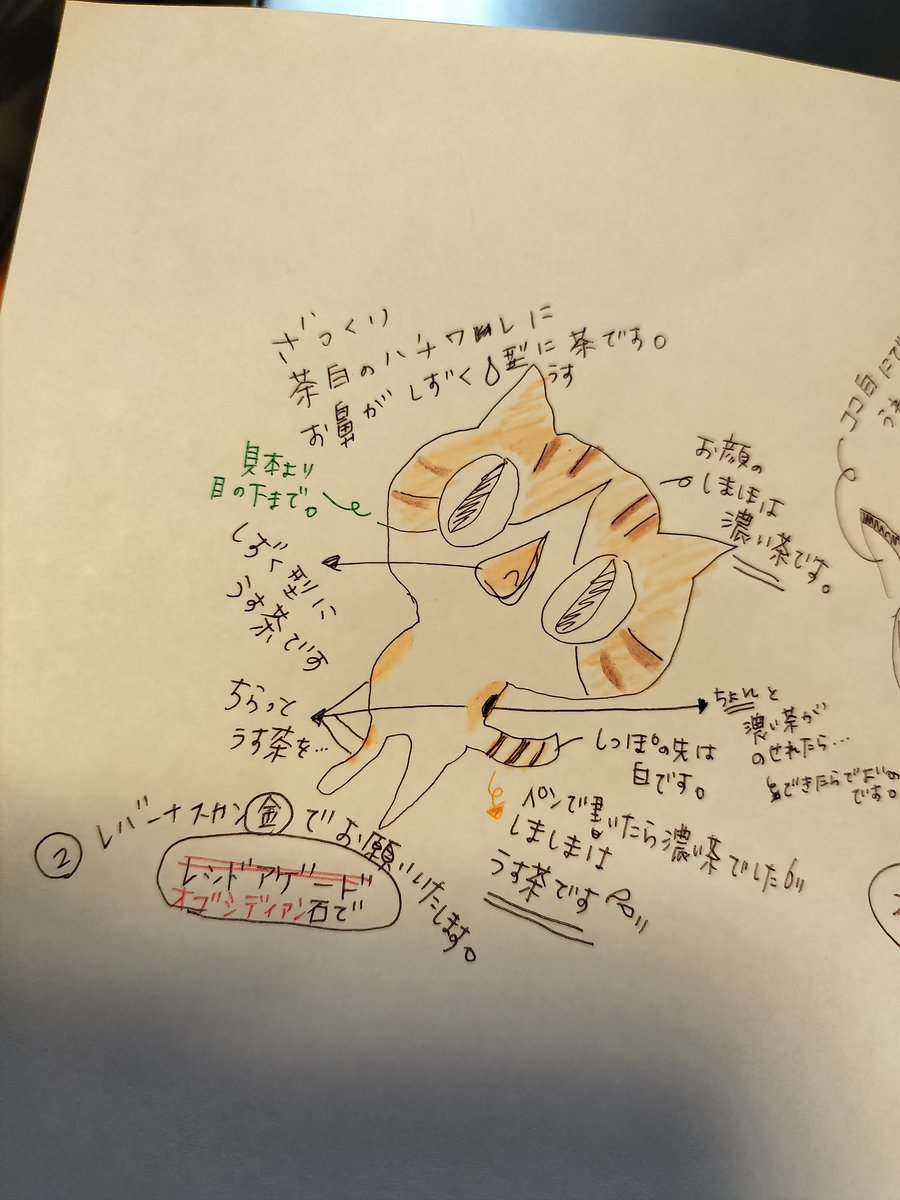 ざっくり
茶白のハチワレに
お鼻がしずく型に茶です。
うす
見本より
目の下まで。
お顔の
しましまは
濃い茶です。
しずく型に
うす茶です
ちらっと
うす茶を…
ちょんと
濃い茶が
のせれたら…
できたらでよいの
です。
しっぽの先は
白です。
ペンで書いたら濃い茶でした
しましまは
うす茶です
② レバーナスカン金でお願いいたします。
レッドアゲード
オブシディアン石で
ココ白にで